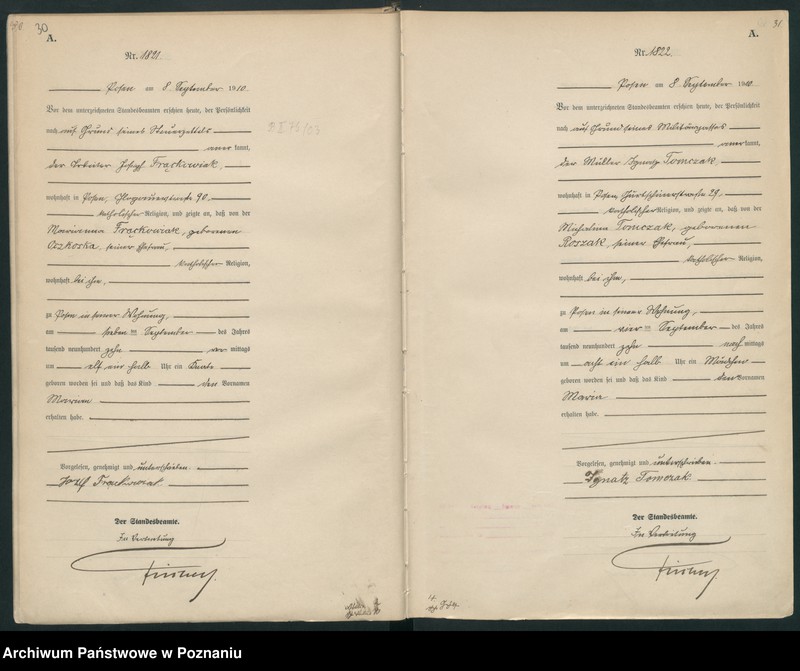 30
A.
Nr. 1821.
Posen am 8. September 1910.
Vor dem unterzeichneten Standesbeamten erschien heute, der Persönlichkeit
nach auf Grund seines Steuerzettels
anerkannt,
der Arbeiter Josef Frąckowiak,
wohnhaft in Posen, Glogauerstraße 90,
katholischer Religion, und zeigte an, daß von der
Marianna Frąckowiak, geborenen
seiner Ehefrau,
katholischer Religion,
wohnhaft bei ihm,
zu Posen in seiner Wohnung,
am sieben ten September des Jahres
tausend neunhundert zehn vor mittags
um elf ein halb Uhr ein Knabe
geboren worden sei und daß das Kind den Vornamen
Marian
erhalten habe.
Vorgelesen, genehmigt und unterschrieben.
Józef Frąckowiak
Der Standesbeamte.
In Vertretung
31
A.
Nr. 1822.
Posen am 8. September 1910.
Vor dem unterzeichneten Standesbeamten erschien heute, der Persönlichkeit
nach auf Grund seines Militärpasses
anerkannt,
der Müller Ignatz Tomczak,
wohnhaft in Posen, 29,
katholischer Religion, und zeigte an, daß von der
Michalina Tomczak, geborenen
Roszak, seiner Ehefrau,
katholischer Religion,
wohnhaft bei ihm,
zu Posen in seiner Wohnung,
am vier ten September des Jahres
tausend neunhundert zehn nach mittags
um acht ein halb Uhr ein Mädchen
geboren worden sei und daß das Kind den Vornamen
Maria
erhalten habe.
Vorgelesen, genehmigt und unterschrieben.
Ignatz Tomczak
Der Standesbeamte.
In Vertretung
Archiwum Państwowe w Poznaniu